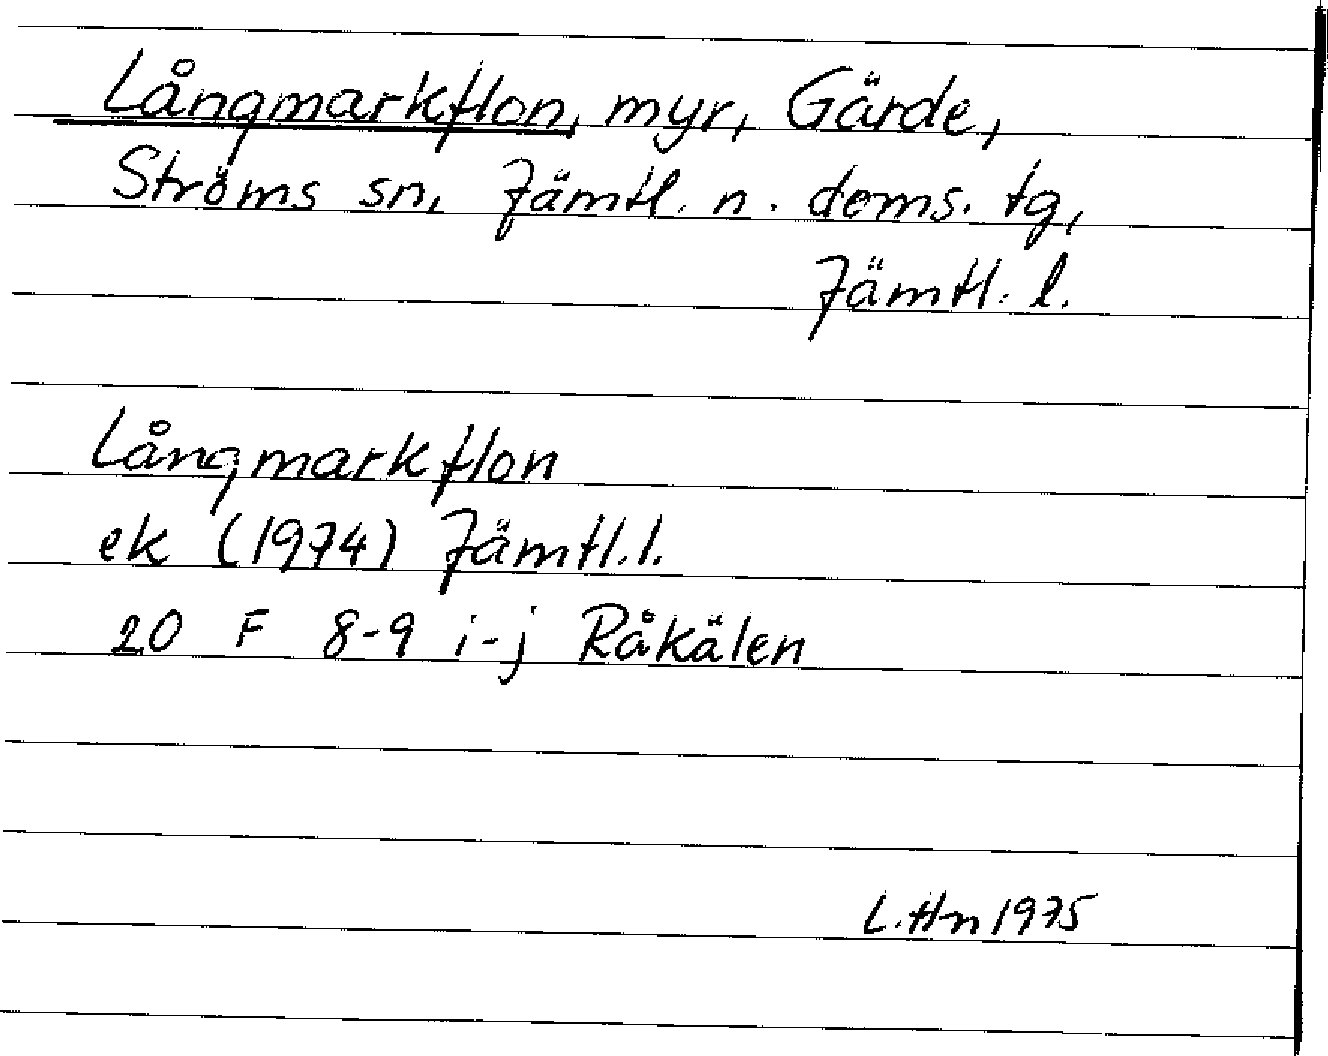 Långmarkflon, myr, Gärde,
Ströms sn, Jämtl. n. doms. tg,
Jämtl. l.
Långmarkflon
ek (1974) Jämtl. l.
20 F 8-9 i-j Råkälen
L. Hn 1975